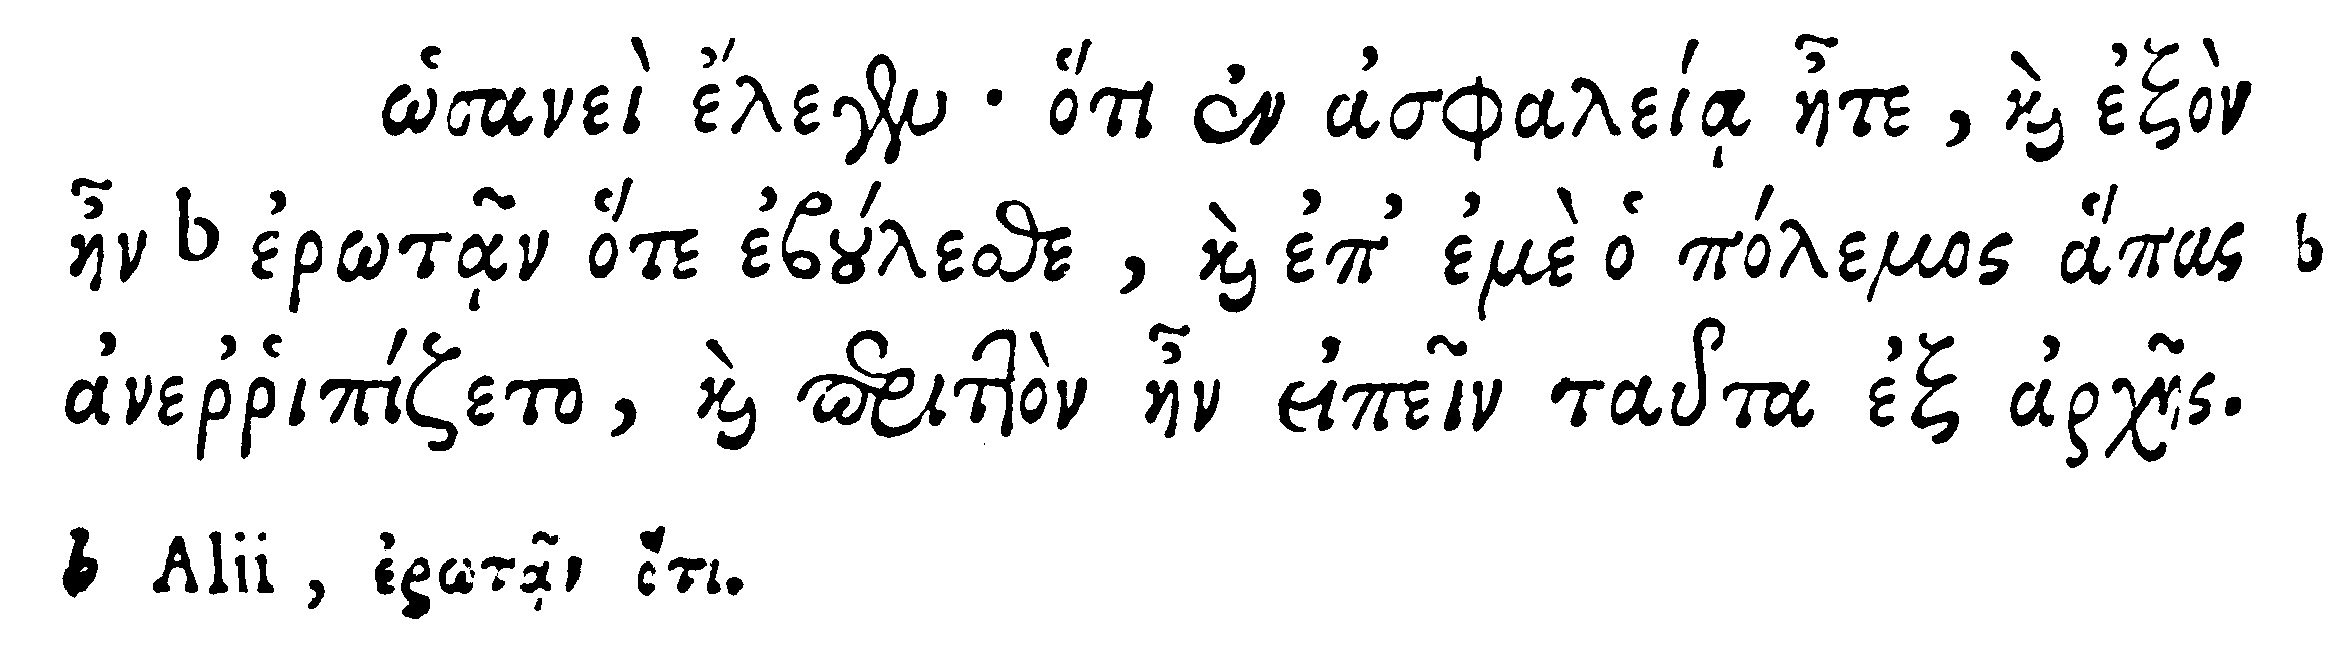 ὡσανεὶ ἔλεγεν · ὅτι ἐν ἀσφαλείᾳ ἦτε, καὶ ἐξὸν
ἦν b ἐρωτᾷν ὅτε ἐβούλεσθε, καὶ ἐπ' ἐμὲ ὁ πόλεμος ἅπας b
ἀνεῤῥιπίζετο, καὶ περιττὸν ἦν εἰπεῖν ταῦτα ἐξ ἀρχῆς.
b Alii, ἐρωτᾷν ὅτι.